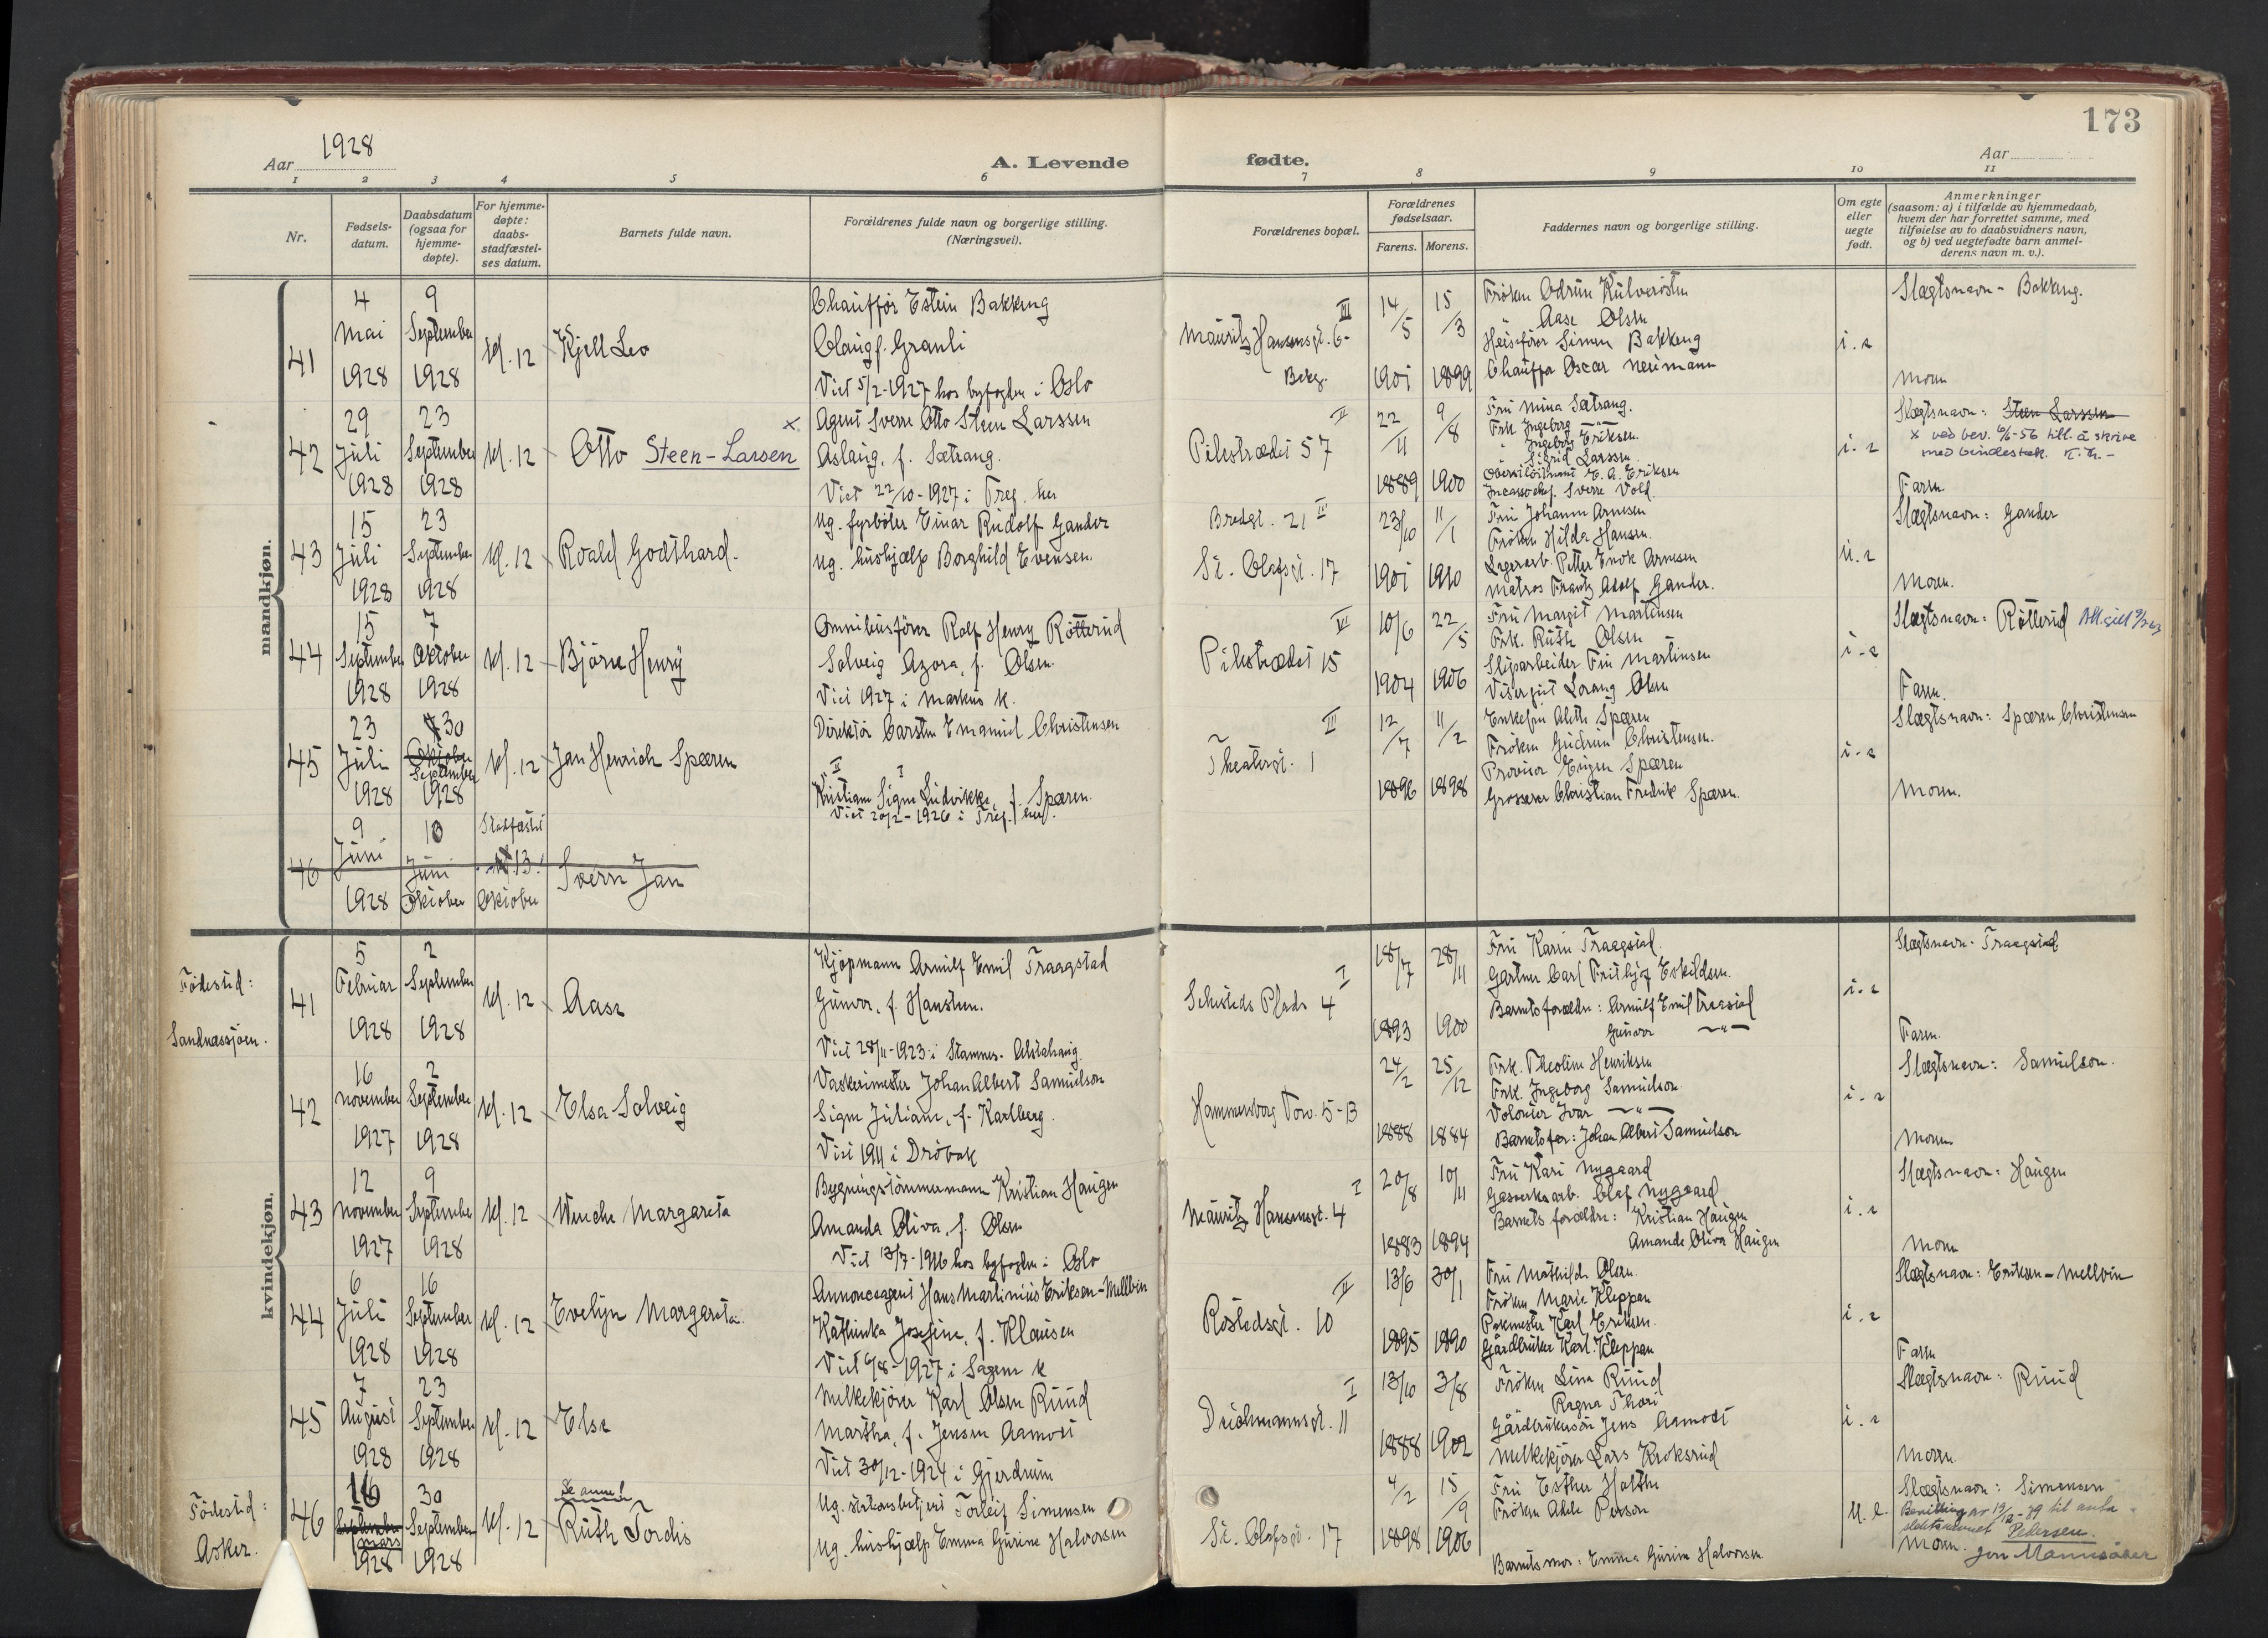 173
Aar 1928
A. Levende
fødte.
Aar
1 2 3 4 5 6 7 8 9 10 11
Nr.
Fødsels-
datum.
Daabsdatum
(ogsaa for
hjemme-
døpte).
For hjemme-
døpte:
daabs-
stadfæstel-
ses datum.
Barnets fulde navn.
Forældrenes fulde navn og borgerlige stilling.
(Næringsvei).
Forældrenes bopæl.
Forældrenes
fødselsaar.
Farens. Morens.
Faddernes navn og borgerlige stilling.
Om egte
eller
uegte
født.
Anmerkninger
(saasom: a) i tilfælde av hjemmedaab,
hvem der har forrettet samme, med
tilføielse av to daabsvidners navn,
og b) ved uegtefødte barn anmel-
derens navn m. v.).
mandkjøn.
41
4
Mai
1928
9
September
1928
kl. 12
Kjell Leo
Chauffør Estein Bakkeng
Olaug f. Granli
Viet 5/2-1927 hos byfogden i Oslo
III
Mauritz Hansensgt. 6-
14/5
1901
15/3
1899
Frøken Odrun Kulverøsten
" Aase Olsen
Heisefører Simen Bakkeng
Chauffør Oscar Neumann
i. e
Slægtsnavn - Bakkeng.
Moren
42
29
Juli
1928
23
September
1928
kl. 12
Otto Steen-Larsen
x
Agent Sverre Otto Steen Larssen
Aslaug, f. Sætrang.
Viet 22/10-1927 i Treg. her
II
Pilestrædet 57
22/11
1889
9/8
1900
Fru Mina Sætrang.
Frk. Ingeborg —"—
" Ingeborg Eriksen.
" Sigrid Larssen
E. A. Eriksen
Sverre Vold.
i. e
Slægtsnavn: Steen Larssen
x ved bev. 6/6-56 till. å skrive
med bindestrek.
Faren
43
15
Juli
1928
23
September
1928
kl. 12
Roald Godthard.
Ug. fyrbøter Einar Rudolf Gander
Ug. hushjælp Borghild Evensen.
Bredgt. 21 II
St. Olafsgt. 17
23/10
1901
11/1
1910
Fru Johanne Arnesen
Frøken Hilda Hansen.
Lagerarb. Petter Enok Arnesen
Matros Frantz Adolf Gander.
U. e
Slægtsnavn: Gander
Moren.
44
15
September
1928
7
Oktober
1928
kl. 12
Bjørn Henry
Omnibusfører Rolf Henry Røtterud
Solveig Azora, f. Olsen.
Viet 1927 i Markus k.
VI
Pilestrædet 15
10/6
1904
22/5
1906
Fru Margit Martinsen
Frk. Ruth Olsen
Sliparbeider Finn Martinsen
Visergut Lorang Olsen
i. e
Slægtsnavn: Røtterud
Faren.
45
23
Juli
1928
30
Oktober
September
1928
kl. 12
Jan Henrich Spæren
Direktør Carsten Emanuel Christensen
II I
Kristiane Signe Ludvikke, f. Spæren.
Viet 20/2-1926 i Treg. her.
III
Theatergt. 1
12/7
1896
11/2
1898
Enkefru Alette Spæren
Frøken Gudrun Christensen.
Provisor Eugen Spæren
Grosserer Christian Fredrik Spæren.
i. e
Slægtsnavn: Spæren Christensen
Moren.
46
9
Juni
1928
10
Juni
Oktober
Stadfæstet
13.
Oktober
Sverre Jan
kvindekjøn.
Fødested:
Sandnessjøen.
41
5
Februar
1928
2
September
1928
kl. 12
Aase
Kjøpmann Arnulf Emil Traagstad
Gunvor, f. Hansteen.
Viet 28/11-1923 i Stamnes. Alstahaug.
I
Schesteds Plads 4
18/7
1893
28/11
1900
Fru Karin Traagstad.
Gartner Carl Fritjof Eskildsen.
Barnets forældre: Arnulf Emil Traagstad
Gunvor —"—
i. e
Slægtsnavn. Traagstad
Faren.
42
16
November
1927
2
September
1928
kl. 12
Elsa Solveig
Vaskerimester Johan Albert Samuelson
Signe Juliane, f. Karlberg.
Viet 1911 i Drøbak
Hammersborg Torv. 5-B
24/2
1888
25/12
1884
Frk. Theoline Henriksen
Frk. Ingeborg Samuelson
Volontør Ivar —"—
Barnets far: Johan Albert Samuelson
i. e
Slægtsnavn: Samuelson.
Moren
43
12
November
1927
9
September
1928
kl. 12
Wenche Margareta
Bygningstømmermann Kristian Haugen
Amanda Oliva, f. Olsen
Viet 13/7-1916 hos byfogden i Oslo
I
Mauritz Hansensgt. 4
20/8
1883
10/11
1894
Fru Kari Nygaard
Gasverksarb. Olaf Nygaard
Barnets forældre: Kristian Haugen
Amanda Oliva Haugen
i. e
Slægtsnavn: Haugen
Moren
44
6
Juli
1928
16
September
1928
kl. 12
Evelyn Margareta.
Annonceagent Hans Martinius Eriksen-Mellvin
Kathinka Josefine, f. Klausen
Viet 6/8-1927 i Sagene k
II
Rostedsgt. 10
13/6
1895
30/1
1890
Fru Mathilde Olsen.
Frøken Marie Kleppan
Pakmester Karl Eriksen.
Gårdbruker Karl Kleppan
i. e
Slægtsnavn: Eriksen-Mellvin
Faren
45
7
August
1928
23
September
1928
kl. 12
Else
Melkekjører Karl Olsen Ruud
Martha, f. Jensen Aamodt
Viet 30/12-1924 i Gjerdrum
I
Deichmannsgt. 11
13/10
1888
3/8
1902
Frøken Lina Ruud
Ragna Thori
Gårdbrukersøn Jens Aamodt
Melkekjører Lars Kroksrud
i. e
Slægtsnavn: Ruud
Moren.
Fødested:
Asker.
46
16
September
mars
1928
30
September
1928
kl. 12
Se anm!
Ruth Tordis
Ug. stationsbetjent Torleif Simensen
Ug. hushjælp Emma Gurine Halvorsen
St. Olafsgt. 17
4/2
1898
15/9
1906
Fru Esther Holthe
Frøken Person
Barnets mor: Emma Gurine Halvorsen.
U. e.
Slægtsnavn: Simensen
Bevilling av 19/12-39 til anta
slektsnavnet Pedersen.
Moren. Jon Mannsåker